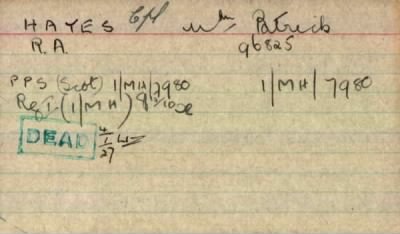 HAYES Cpl Wm Patrick
R.A. 96825
PPS (Scot) 1/MH/7980 1/MH/7980
Reg I. (1/MH)
DEAD 4/1/27